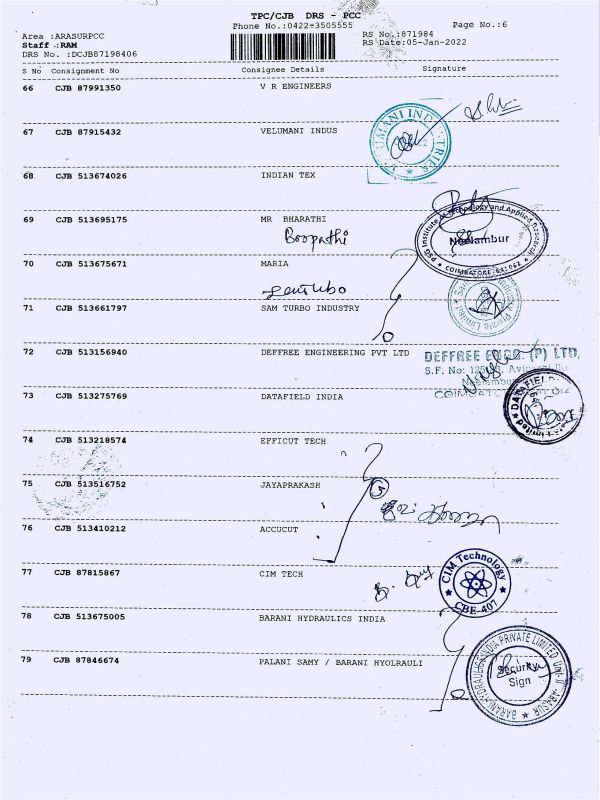 TPC/CJB DRS - PCC
Phone No.:0422-3505555
Page No.:6
Area :ARASURPCC
RS No.:871984
Staff :RAM
RS Date:05-Jan-2022
DRS No. :DCJB87198406
S No Consignment No Consignee Details Signature
66 CJB 87991350 V R ENGINEERS
67 CJB 87915432 VELUMANI INDUS
68 CJB 513674026 INDIAN TEX
69 CJB 513695175 MR BHARATHI
Boopathi
PSG Institute of Technology and Applied Research
Neelambur
COIMBATORE-641 062
70 CJB 513675671 MARIA
71 CJB 513661797 SAM TURBO INDUSTRY
72 CJB 513156940 DEFFREE ENGINEERING PVT LTD
DEFFREE ENGG. (P) LTD,
S.F. No:
73 CJB 513275769 DATAFIELD INDIA
DATAFIELD
74 CJB 513218574 EFFICUT TECH
75 CJB 513516752 JAYAPRAKASH
76 CJB 513410212 ACCUCUT
77 CJB 87815867 CIM TECH
CIM Technology
CBE-407
78 CJB 513675005 BARANI HYDRAULICS INDIA
79 CJB 87846674 PALANI SAMY / BARANI HYOLRAULI
BARANI HYDRAULICS INDIA PRIVATE LIMITED Unit-II ARASUR
Security
Sign